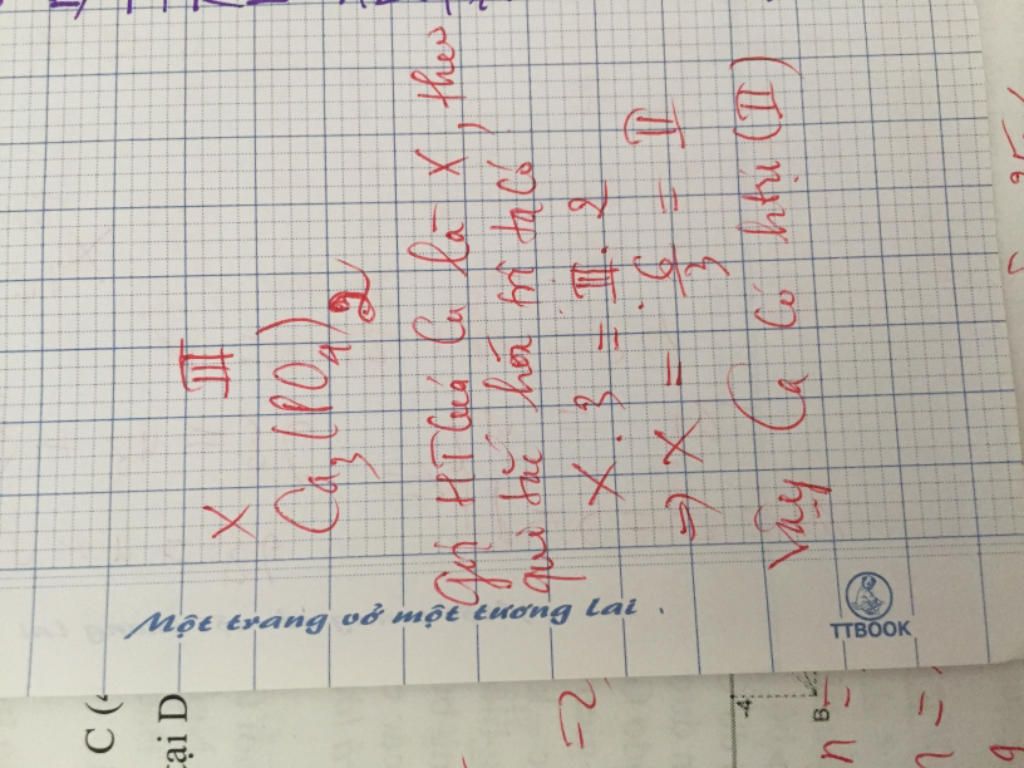 X III
Ca3(PO4)2
Gọi HT của Ca là X, theo
qui tắc hóa trị ta có
X . 3 = III . 2
=> X = 6/3 = II
Vậy Ca có htrị (II)
Một trang vở một tương lai .
TTBOOK
C (4
tại D
=2
-4
B
n =
n =